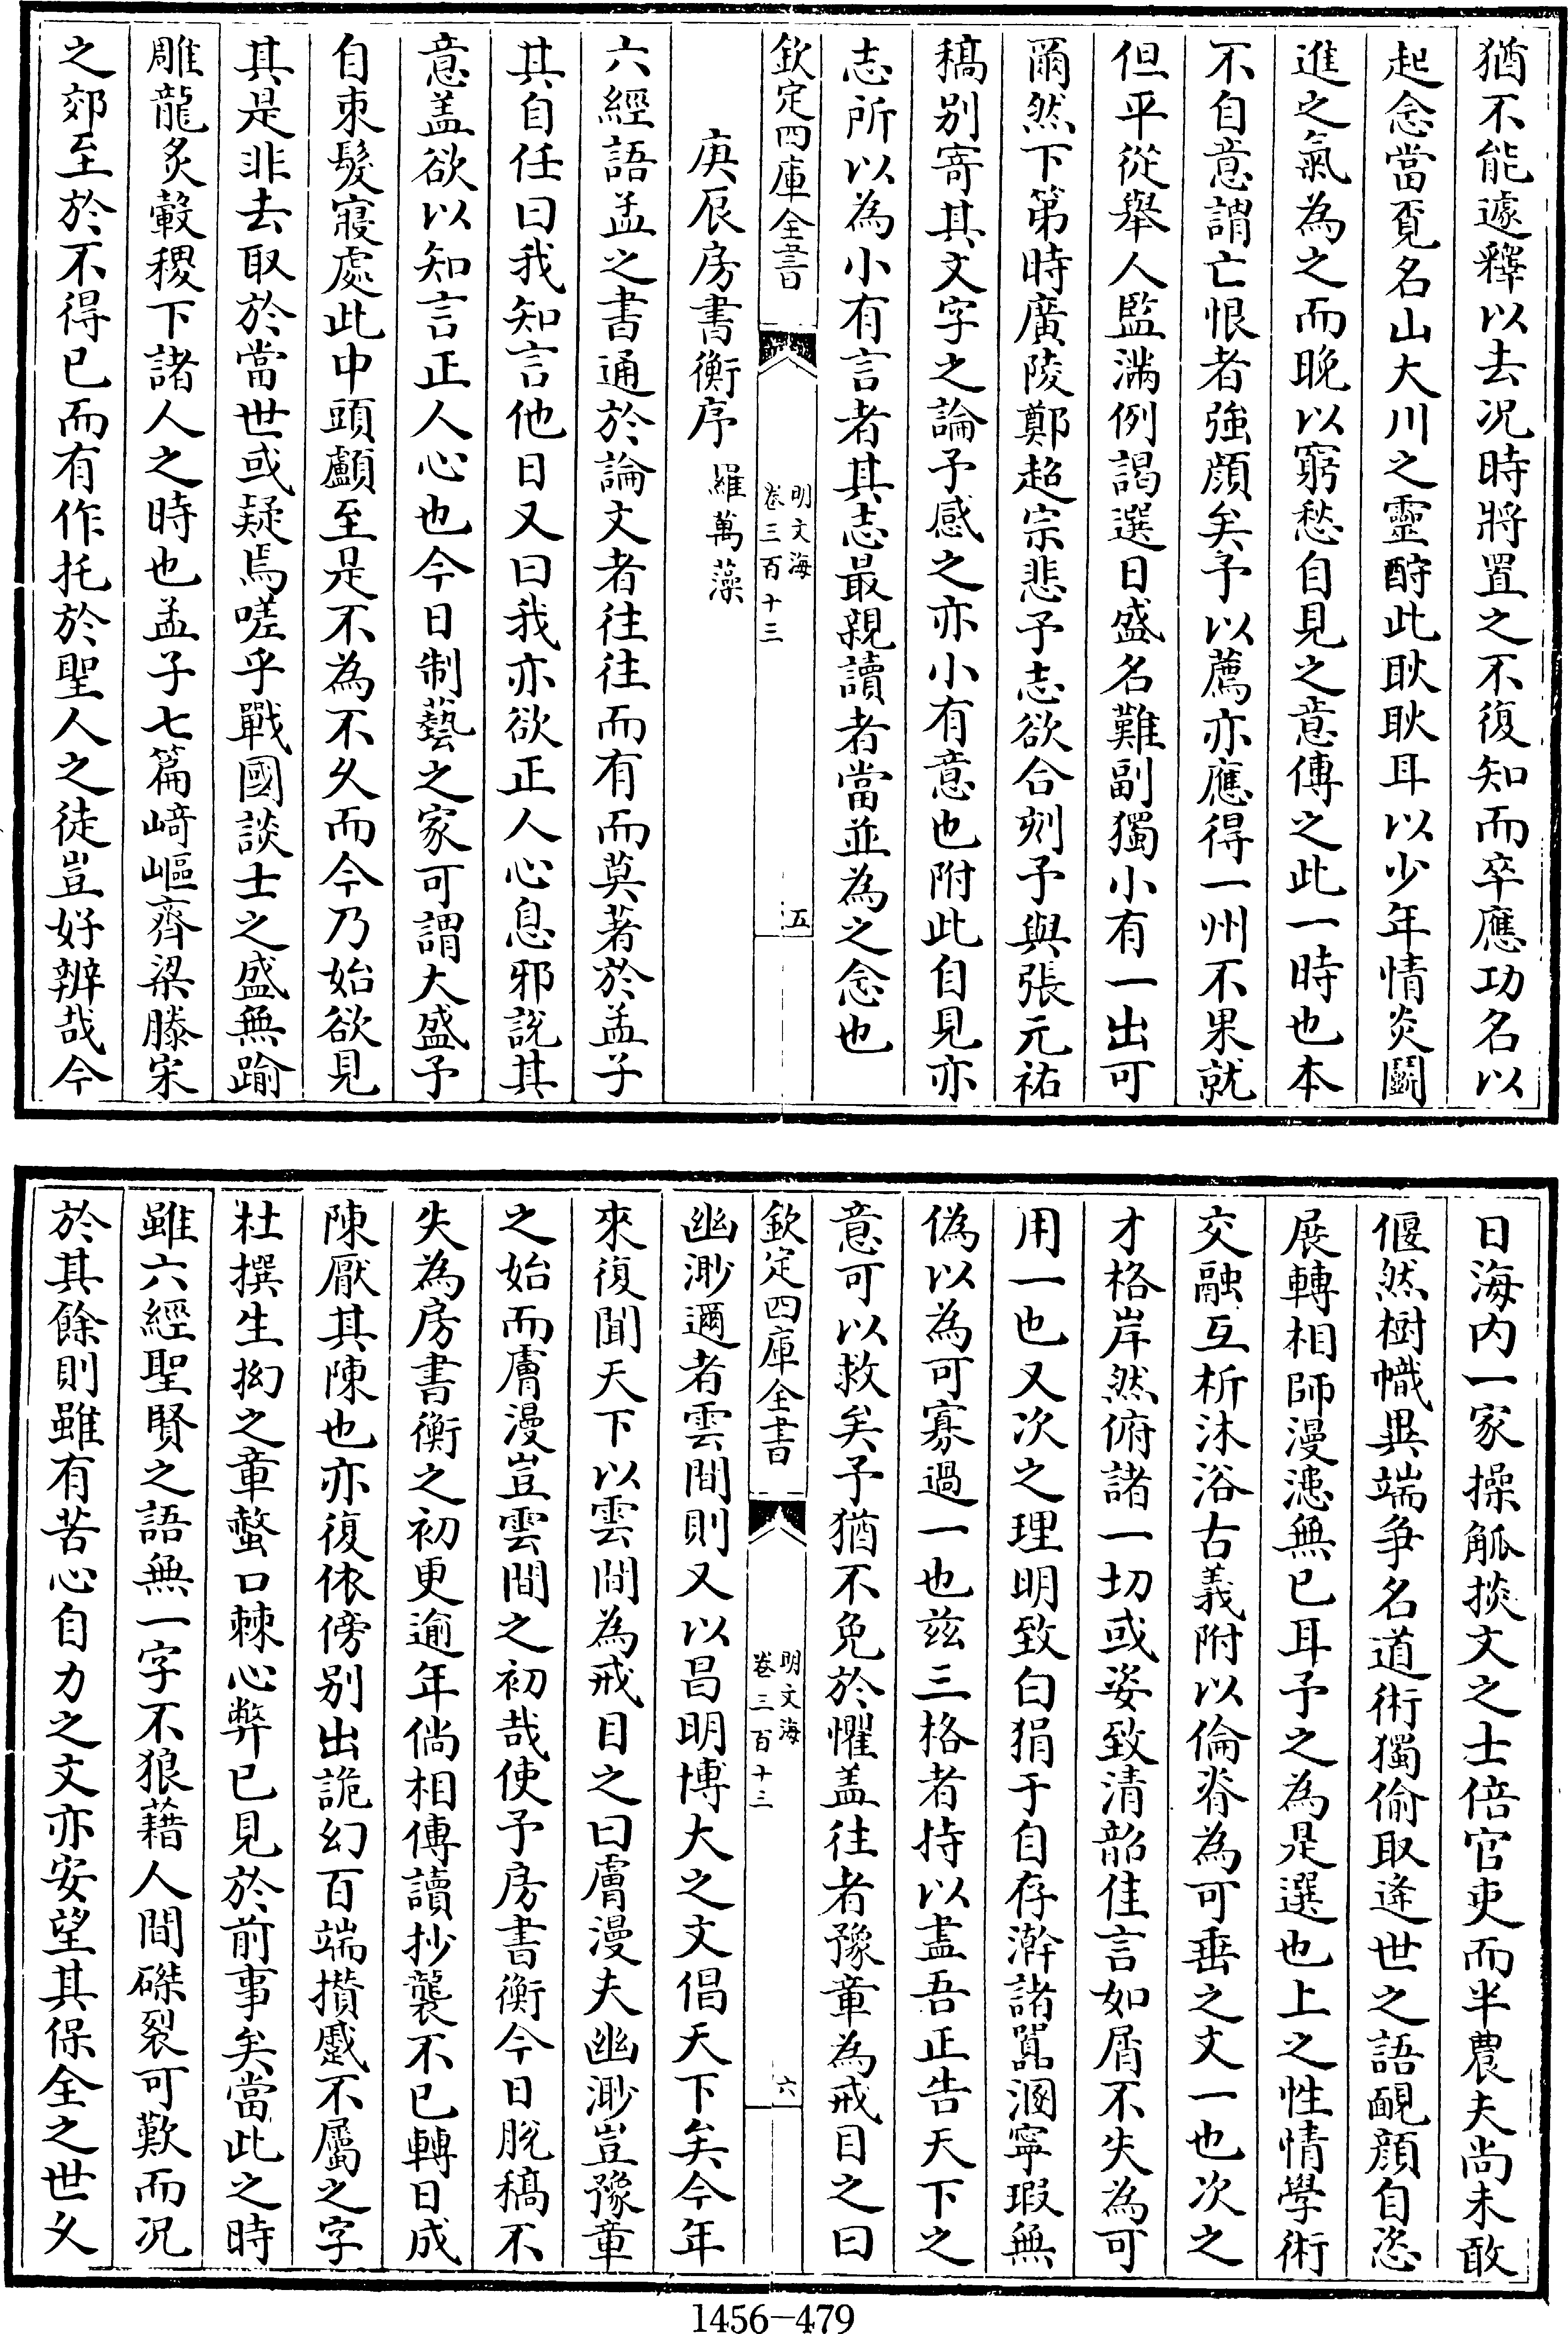 猶不能遽釋以去況時將置之不復知而卒應功名以
起念當覓名山大川之靈酹此耿耿耳以少年情炎鬭
進之氣為之而晚以窮愁自見之意傳之此一時也本
不自意謂亡恨者強顔矣予以薦亦應得一州不果就
但平從舉人監滿例謁選日盛名難副獨小有一出可
爾然下第時廣陵鄭超宗悲予志欲合刻予與張元祐
稿别寄其文字之論予感之亦小有意也附此自見亦
志所以為小有言者其志最親讀者當並為之念也
欽定四庫全書
明文海
卷三百十三
五
庚辰房書衡序 羅萬藻
六經語孟之書通於論文者往往而有而莫著於孟子
其自任曰我知言他日又曰我亦欲正人心息邪說其
意盖欲以知言正人心也今日制藝之家可謂大盛予
自束髮寢處此中頭顱至是不為不久而今乃始欲見
其是非去取於當世或疑焉嗟乎戰國談士之盛無踰
雕龍炙轂稷下諸人之時也孟子七篇崎嶇齊梁滕宋
之郊至於不得已而有作托於聖人之徒豈好辨哉今
日海内一家操觚掞文之士倍官吏而半農夫尚未敢
偃然樹幟異端爭名道術獨偷取逢世之語靦顔自恣
展轉相師漫漶無已耳予之為是選也上之性情學術
交融互析沐浴古義附以倫脊為可垂之文一也次之
才格岸然俯諸一切或姿致清韶佳言如屑不失為可
用一也又次之理明致白狷于自存澣諸嚚溷寧瑕無
偽以為可寡過一也兹三格者持以盡吾正告天下之
意可以救矣予猶不免於懼盖往者豫章為戒目之曰
欽定四庫全書
明文海
卷三百十三
六
幽渺邇者雲間則又以昌明博大之文倡天下矣今年
來復聞天下以雲間為戒目之曰膚漫夫幽渺豈豫章
之始而膚漫豈雲間之初哉使予房書衡今日脫稿不
失為房書衡之初更逾年倘相傳讀抄襲不已轉日成
陳厭其陳也亦復依傍别出詭幻百端攢蹙不屬之字
杜撰生拗之章螫口棘心弊已見於前事矣當此之時
雖六經聖賢之語無一字不狼藉人間磔裂可歎而况
於其餘則雖有苦心自力之文亦安望其保全之世乂
1456-479